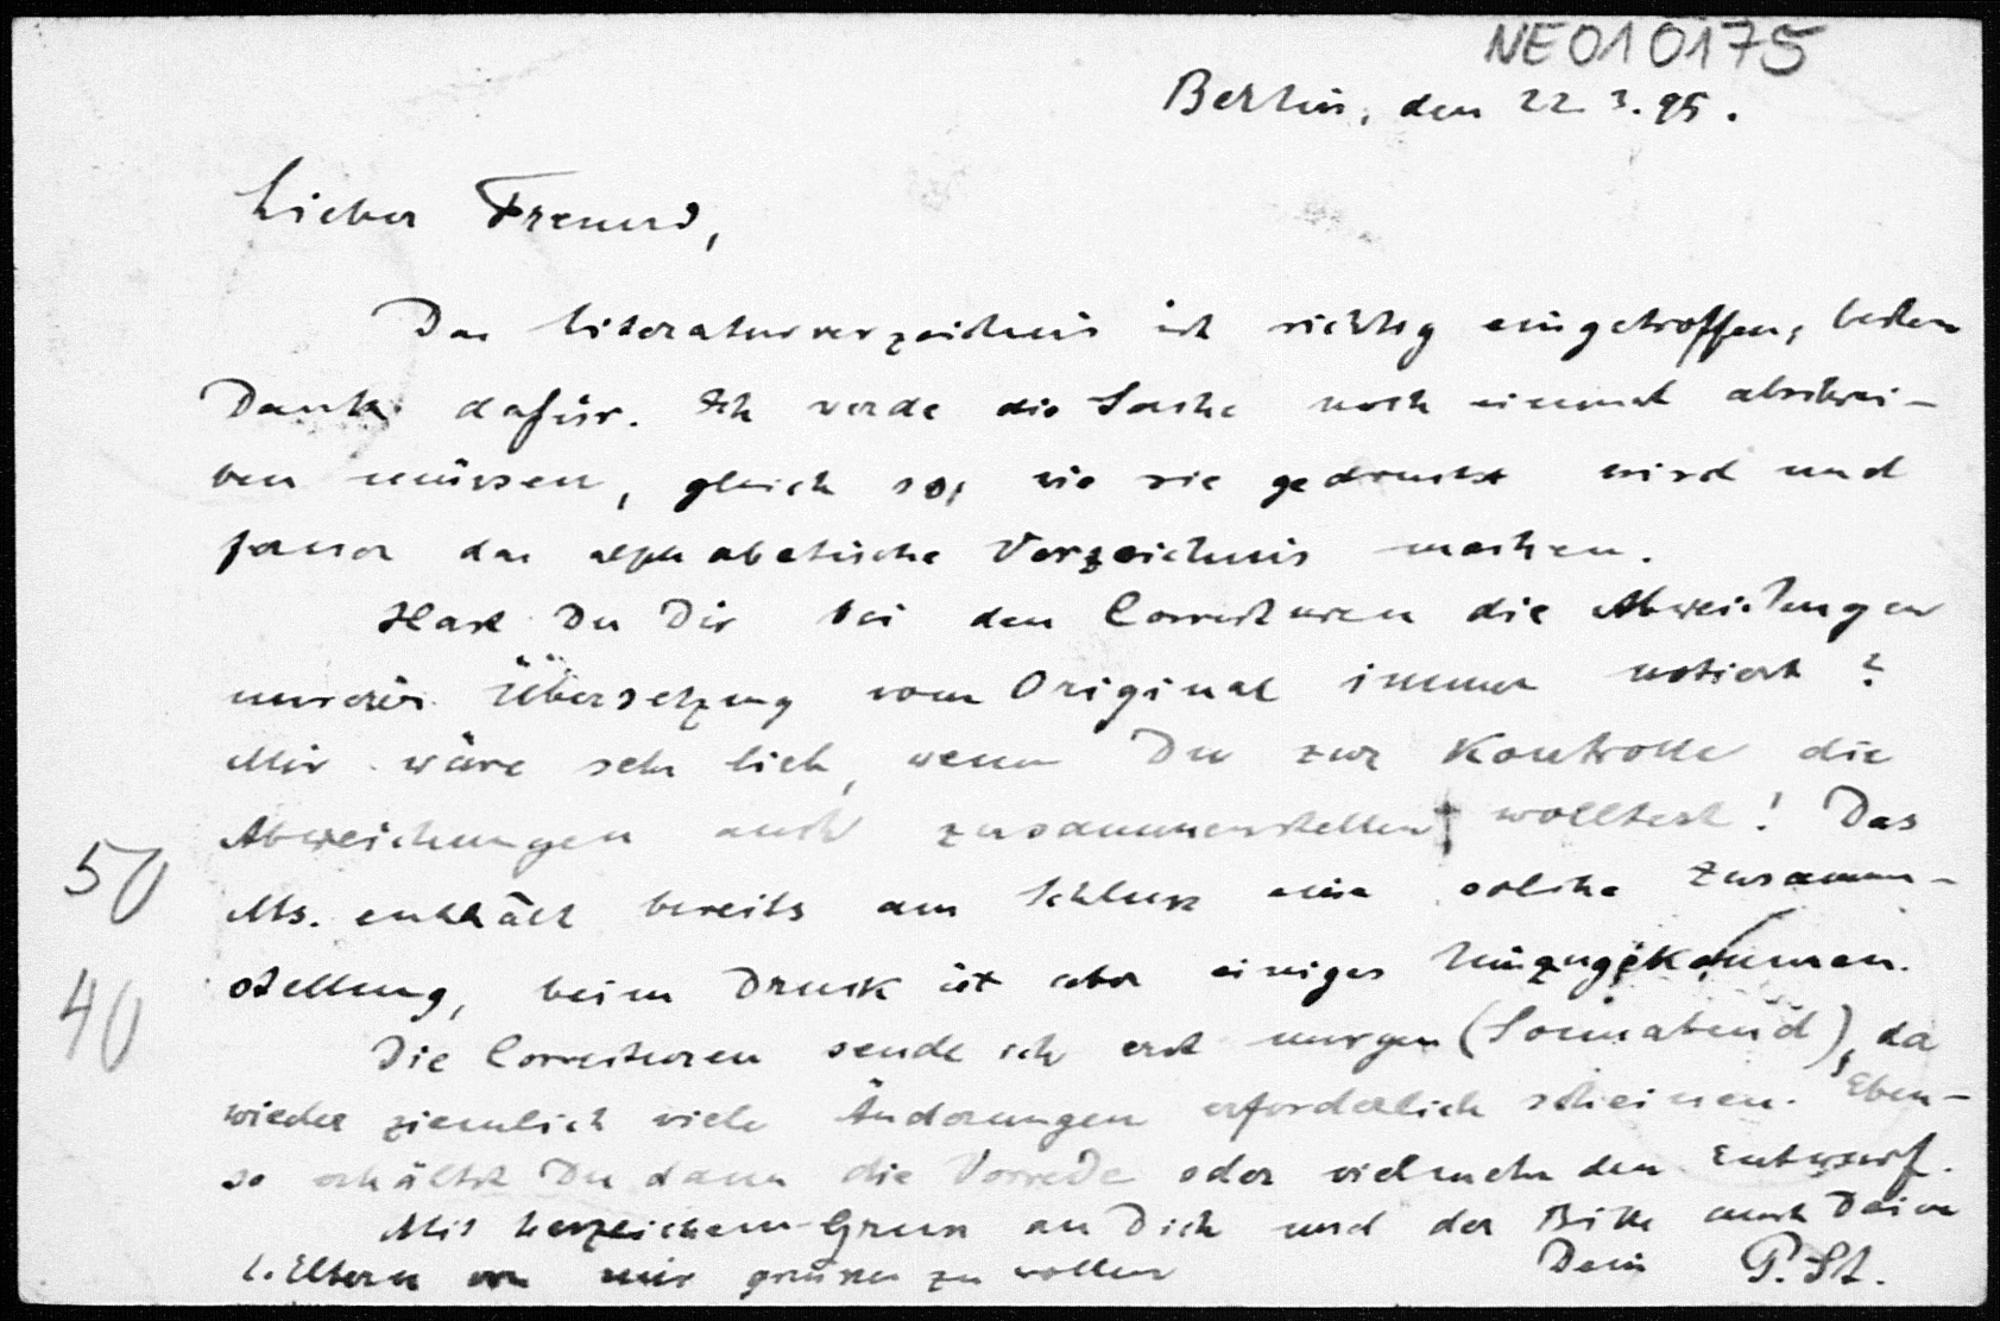 NE010175
Berlin, den 22. 3. 95.
Lieber Freund,
Das Literaturverzeichnis ist richtig eingetroffen, besten
Dank dafür. Ich werde die Sache noch einmal abschrei-
ben müssen, gleich so, wie sie gedruckt wird und
ferner das alphabetische Verzeichnis machen.
Hast Du Dir bei den Correcturen die Abweichungen
unserer Übersetzung vom Original immer notiert?
Mir wäre sehr lieb, wenn Du zur Kontrolle die
Abweichungen auch zusammenstellen wolltest! Das
50
Ms. enthält bereits am Schluss eine solche Zusamm-
stellung, beim Druck ist aber einiges hinzugekommen.
40
Die Correcturen sende ich erst morgen (Sonnabend), da
wieder ziemlich viele Änderungen erforderlich scheinen. Eben-
so erhältst Du dann die Vorrede oder vielmehr den Entwurf.
Mit herzlichem Gruss an Dich und der Bitte auch Deine
l. Eltern von mir grüssen zu wollen
Dein P. St.